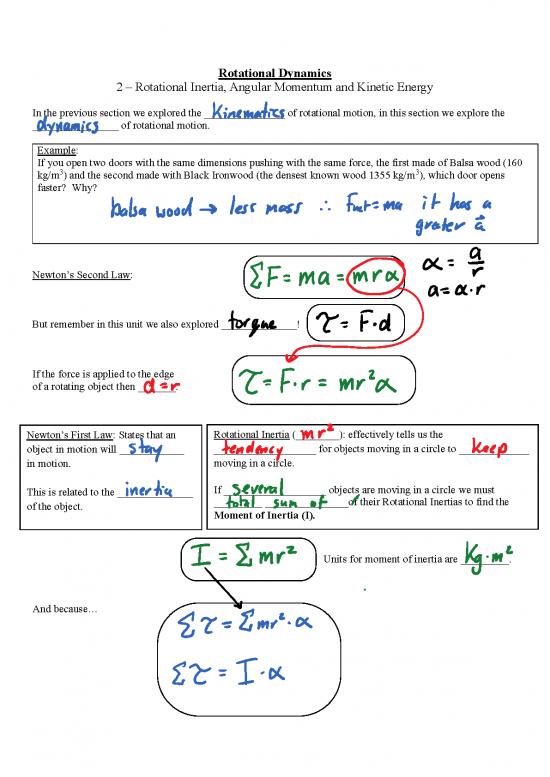 Rotational Dynamics
2 – Rotational Inertia, Angular Momentum and Kinetic Energy
In the previous section we explored the Kinematics of rotational motion, in this section we explore the
dynamics of rotational motion.
Example:
If you open two doors with the same dimensions pushing with the same force, the first made of Balsa wood (160
kg/m³) and the second made with Black Ironwood (the densest known wood 1355 kg/m³), which door opens
faster? Why?
balsa wood → less mass ∴ Fnet = ma it has a
grater a⃗
Newton's Second Law: ΣF = ma = mrα
α = a/r
a = α·r
But remember in this unit we also explored torque! τ = F·d
If the force is applied to the edge
of a rotating object then d = r.
τ = F·r = mr²α
Newton's First Law: States that an
object in motion will stay
in motion.
This is related to the inertia
of the object.
Rotational Inertia (mr²): effectively tells us the
tendency for objects moving in a circle to keep
moving in a circle.
If several objects are moving in a circle we must
total sum of of their Rotational Inertias to find the
Moment of Inertia (I).
I = Σmr² Units for moment of inertia are Kg·m².
And because…
Στ = Σmr²·α
Στ = I·α